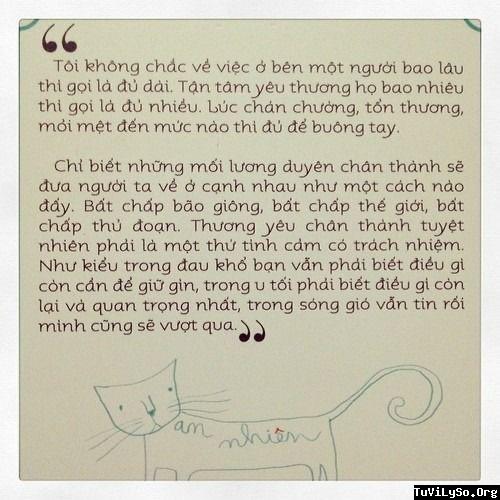 “
Tôi không chắc về việc ở bên một người bao lâu
thì gọi là đủ dài. Tận tâm yêu thương họ bao nhiêu
thì gọi là đủ nhiều. Lúc chán chường, tổn thương,
mỏi mệt đến mức nào thì đủ để buông tay.
Chỉ biết những mối lương duyên chân thành sẽ
đưa người ta về ở cạnh nhau như một cách nào
đấy. Bất chấp bão giông, bất chấp thế giới, bất
chấp thủ đoạn. Thương yêu chân thành tuyệt
nhiên phải là một thứ tình cảm có trách nhiệm.
Như kiểu trong đau khổ bạn vẫn phải biết điều gì
còn cần để giữ gìn, trong u tối phải biết điều gì còn
lại và quan trọng nhất, trong sóng gió vẫn tin rồi
mình cũng sẽ vượt qua.”
an nhiên
TuViLySo.Org